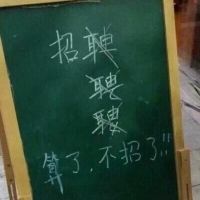 招聘
聘
聘
算了,不招了!!